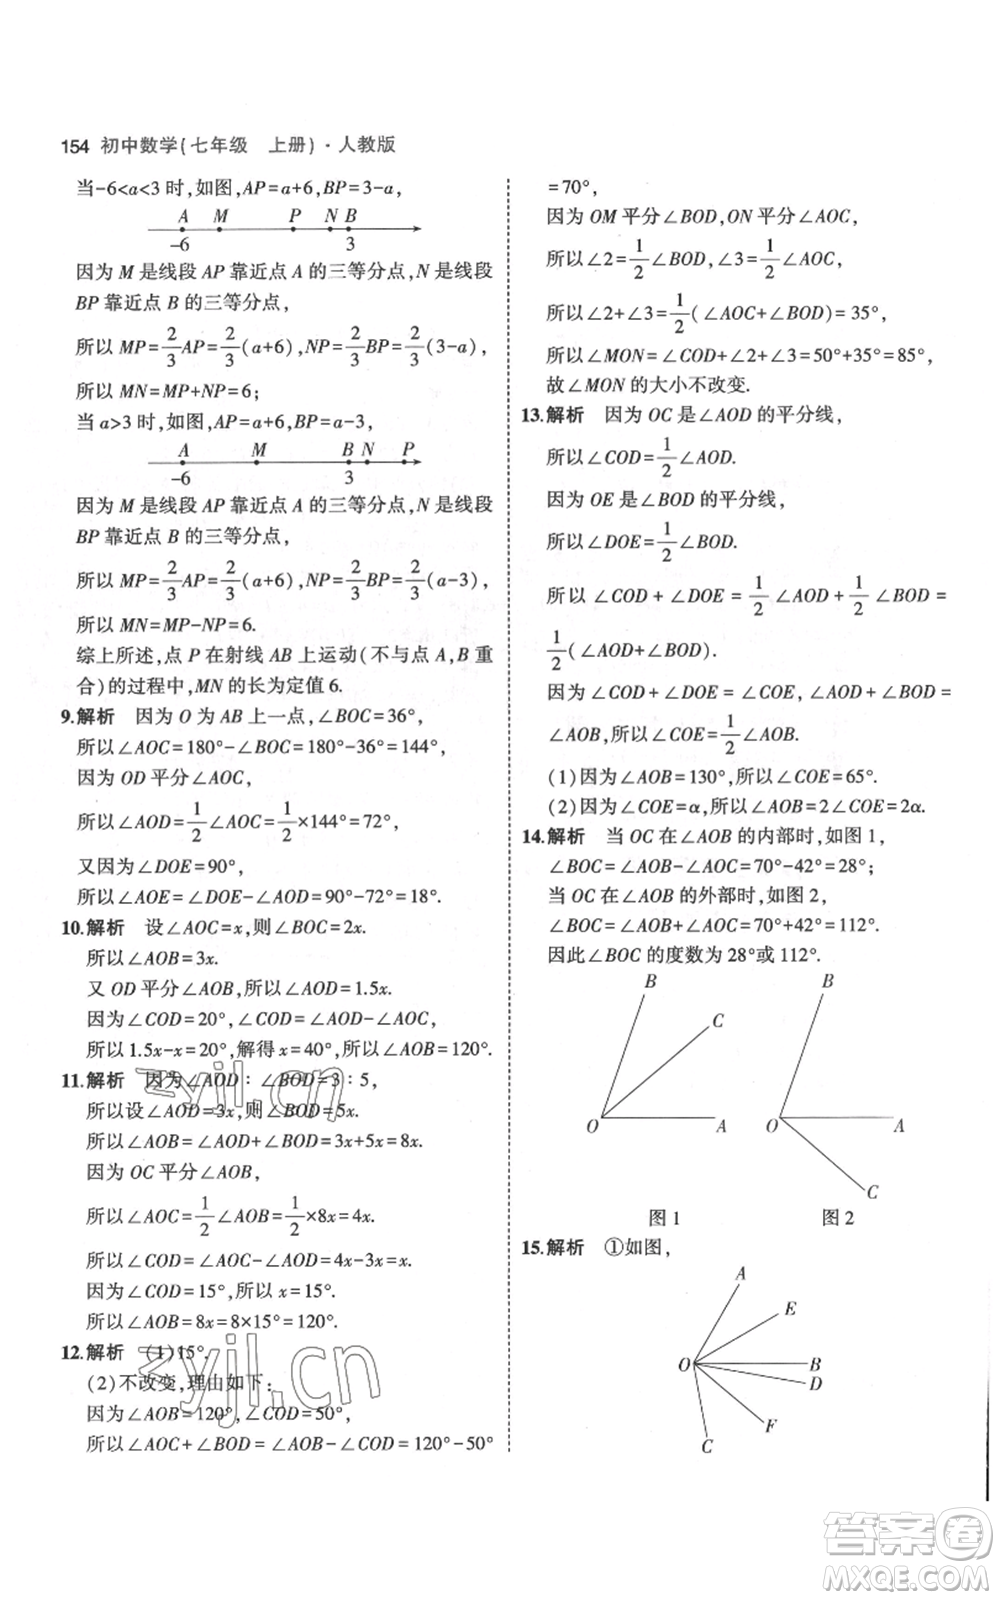 154 初中数学(七年级 上册)·人教版
当-6<a<3 时,如图,AP=a+6,BP=3-a,
A M P N B
-6 3
因为 M 是线段 AP 靠近点 A 的三等分点,N 是线段
BP 靠近点 B 的三等分点,
所以 MP=2/3AP=2/3(a+6),NP=2/3BP=2/3(3-a),
所以 MN=MP+NP=6;
当 a>3 时,如图,AP=a+6,BP=a-3,
A M B N P
-6 3
因为 M 是线段 AP 靠近点 A 的三等分点,N 是线段
BP 靠近点 B 的三等分点,
所以 MP=2/3AP=2/3(a+6),NP=2/3BP=2/3(a-3),
所以 MN=MP-NP=6.
综上所述,点 P 在射线 AB 上运动(不与点 A,B 重
合)的过程中,MN 的长为定值 6.
9.解析 因为 O 为 AB 上一点,∠BOC=36°,
所以∠AOC=180°-∠BOC=180°-36°=144°,
因为 OD 平分∠AOC,
所以∠AOD=1/2∠AOC=1/2×144°=72°,
又因为∠DOE=90°,
所以∠AOE=∠DOE-∠AOD=90°-72°=18°.
10.解析 设∠AOC=x,则∠BOC=2x.
所以∠AOB=3x.
又 OD 平分∠AOB,所以∠AOD=1.5x.
因为∠COD=20°,∠COD=∠AOD-∠AOC,
所以 1.5x-x=20°,解得 x=40°,所以∠AOB=120°.
11.解析 因为∠AOD∶∠BOD=3∶5,
所以设∠AOD=3x,则∠BOD=5x.
所以∠AOB=∠AOD+∠BOD=3x+5x=8x.
因为 OC 平分∠AOB,
所以∠AOC=1/2∠AOB=1/2×8x=4x.
所以∠COD=∠AOC-∠AOD=4x-3x=x.
因为∠COD=15°,所以 x=15°.
所以∠AOB=8x=8×15°=120°.
12.解析 (1)15°.
(2)不改变,理由如下:
因为∠AOB=120°,∠COD=50°,
所以∠AOC+∠BOD=∠AOB-∠COD=120°-50°
=70°,
因为 OM 平分∠BOD,ON 平分∠AOC,
所以∠2=1/2∠BOD,∠3=1/2∠AOC,
所以∠2+∠3=1/2(∠AOC+∠BOD)=35°,
所以∠MON=∠COD+∠2+∠3=50°+35°=85°,
故∠MON 的大小不改变.
13.解析 因为 OC 是∠AOD 的平分线,
所以∠COD=1/2∠AOD.
因为 OE 是∠BOD 的平分线,
所以∠DOE=1/2∠BOD.
所以∠COD+∠DOE=1/2∠AOD+1/2∠BOD=
1/2(∠AOD+∠BOD).
因为∠COD+∠DOE=∠COE,∠AOD+∠BOD=
∠AOB,所以∠COE=1/2∠AOB.
(1)因为∠AOB=130°,所以∠COE=65°.
(2)因为∠COE=α,所以∠AOB=2∠COE=2α.
14.解析 当 OC 在∠AOB 的内部时,如图 1,
∠BOC=∠AOB-∠AOC=70°-42°=28°;
当 OC 在∠AOB 的外部时,如图 2,
∠BOC=∠AOB+∠AOC=70°+42°=112°.
因此∠BOC 的度数为 28°或 112°.
B C O A
B O A C
图 1 图 2
15.解析 ①如图,
A E O B D F C
zyjl.cn
zyjl.cn
答案卷
MXQE.COM